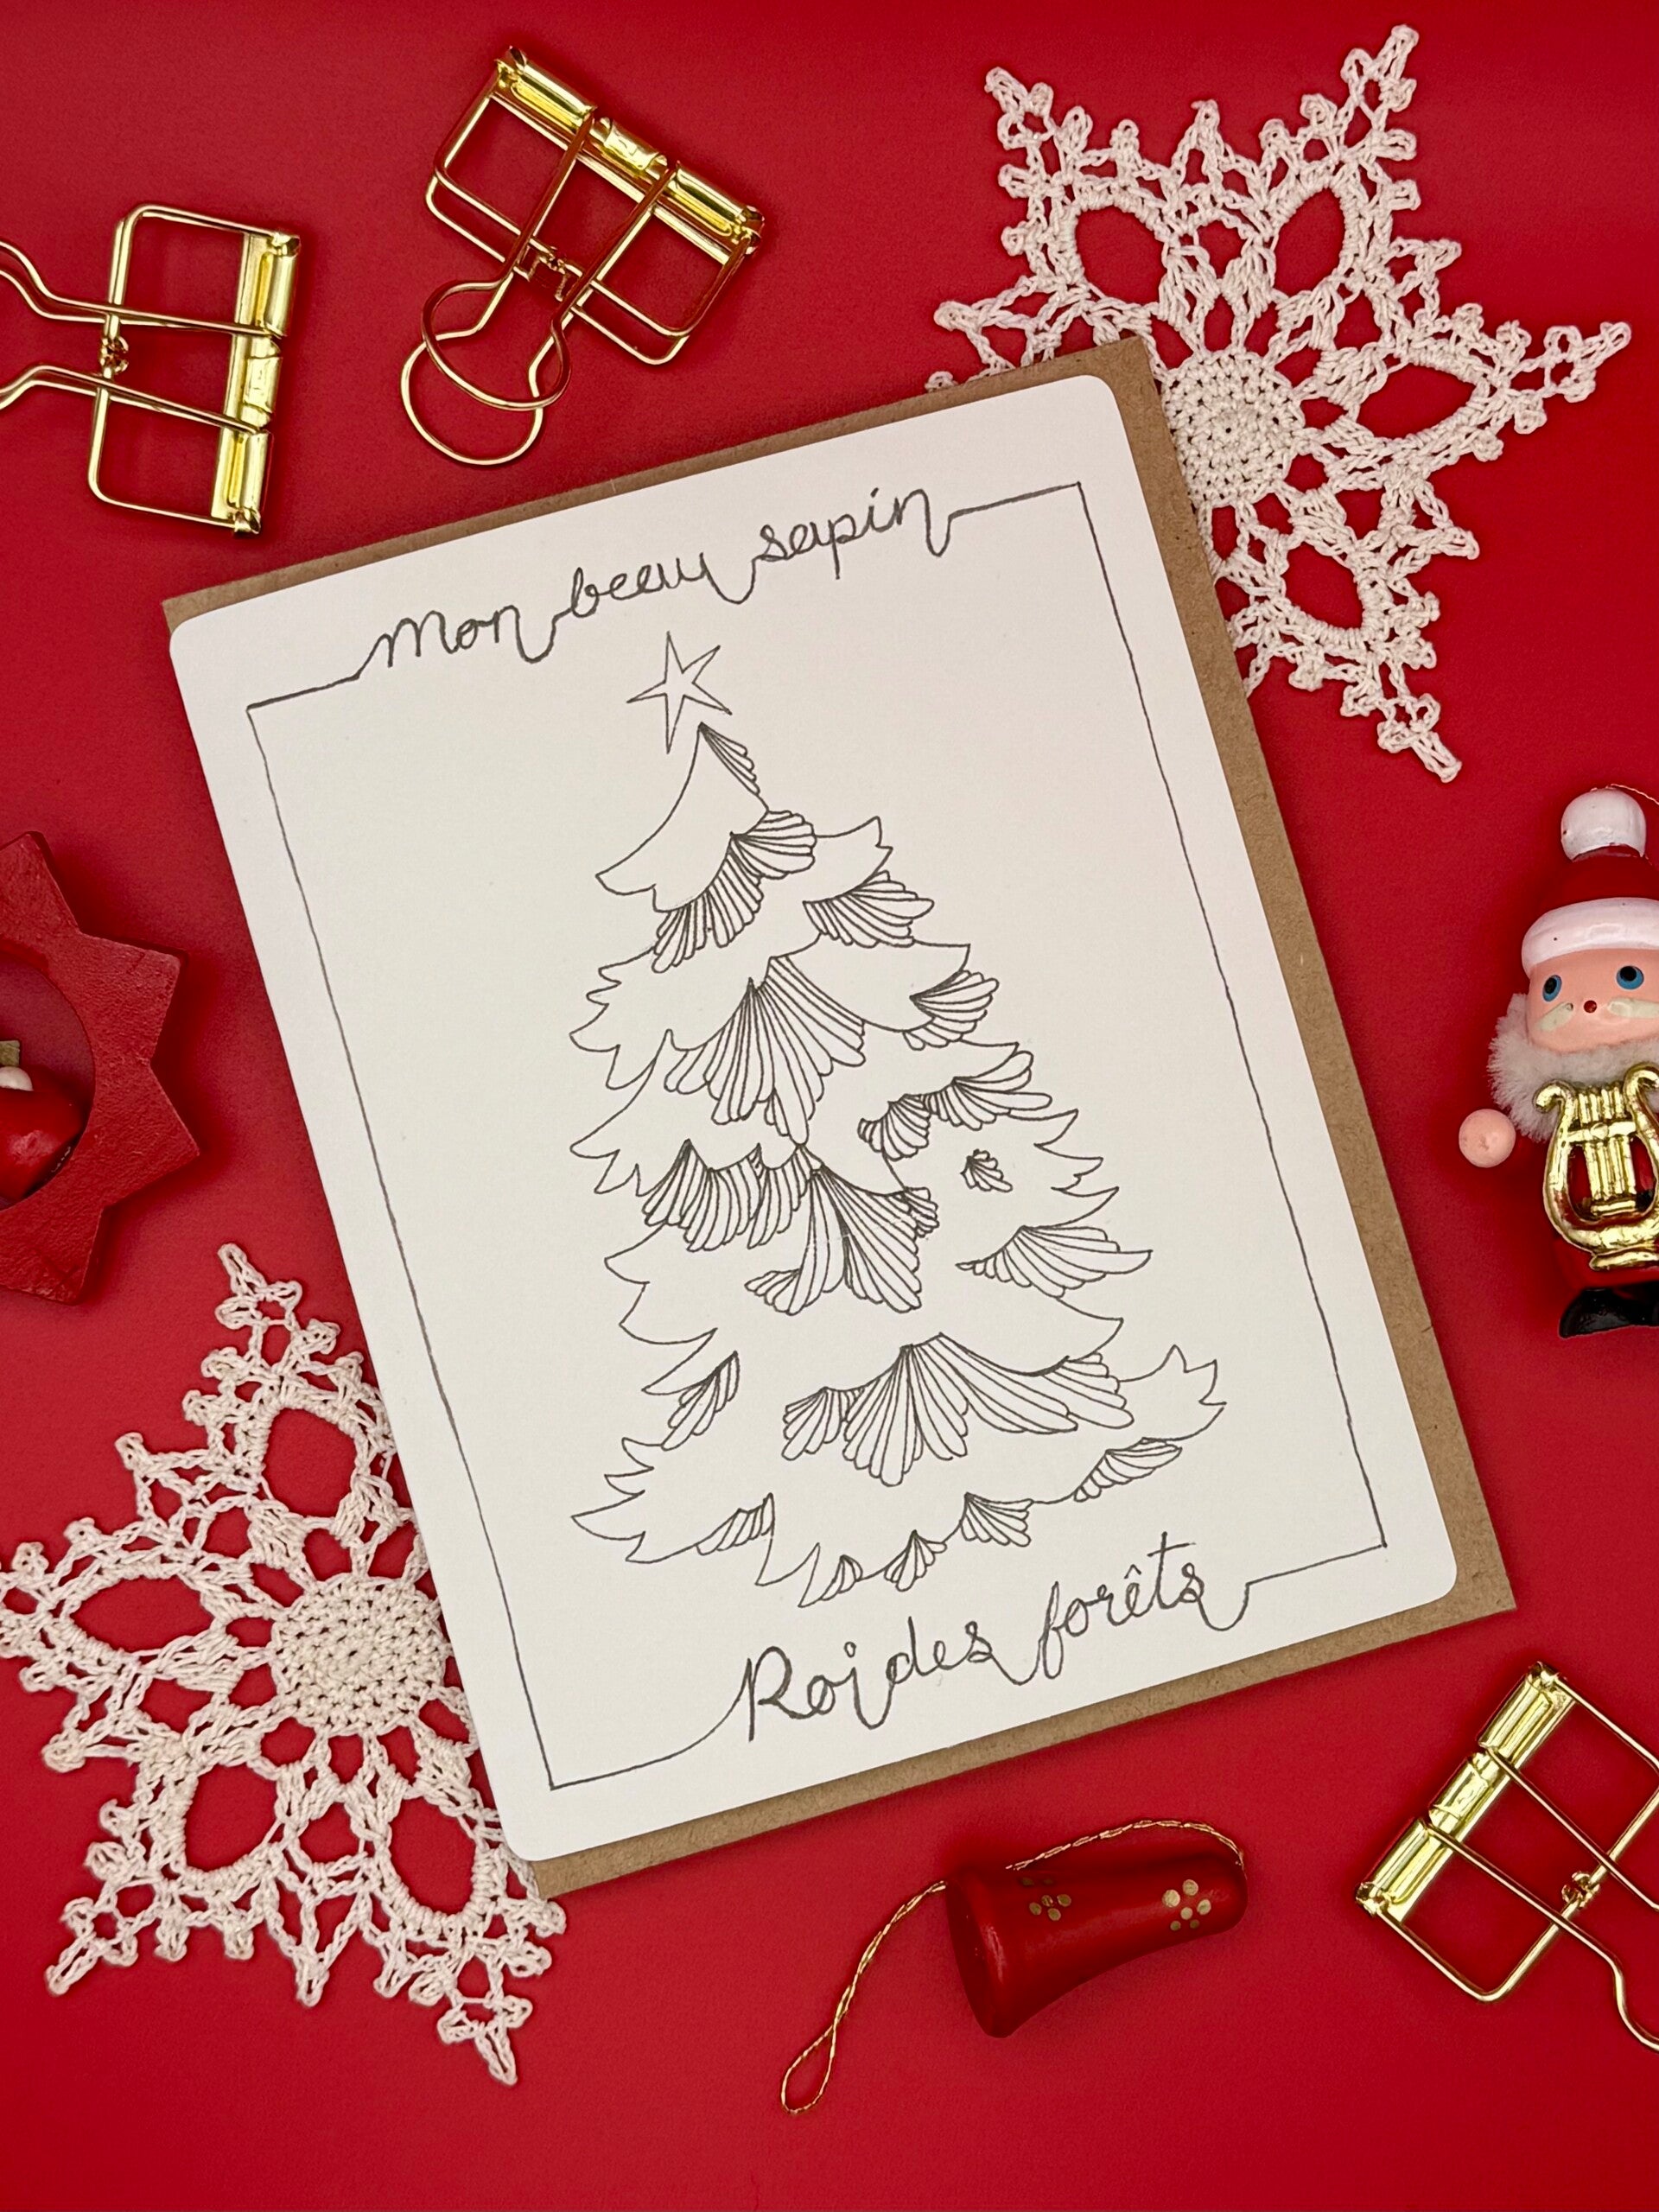 Mon beau sapin
Roi des forêts